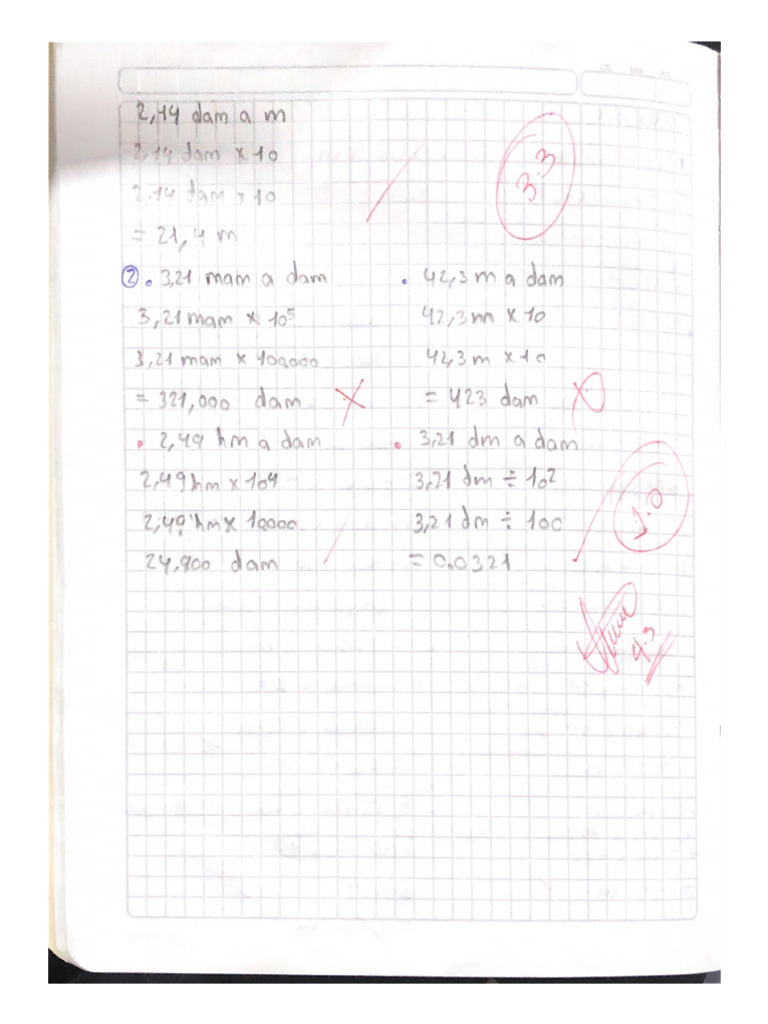 2,14 dam a m
2,14 dam x 10
2.14 dam x 10
= 21,4 m
3.3
② . 3,21 mam a dam
3,21 mam x 10⁵
3,21 mam x 100,000
= 321,000 dam
. 42,3 m a dam
42,3 m x 10
42,3 m x 10
= 423 dam
. 2,49 hm a dam
2,49 hm x 10⁴
2,49 hm x 10000
24,900 dam
. 3,21 dm a dam
3,21 dm ÷ 10²
3,21 dm ÷ 100
= 0.0321
1.0
4.3